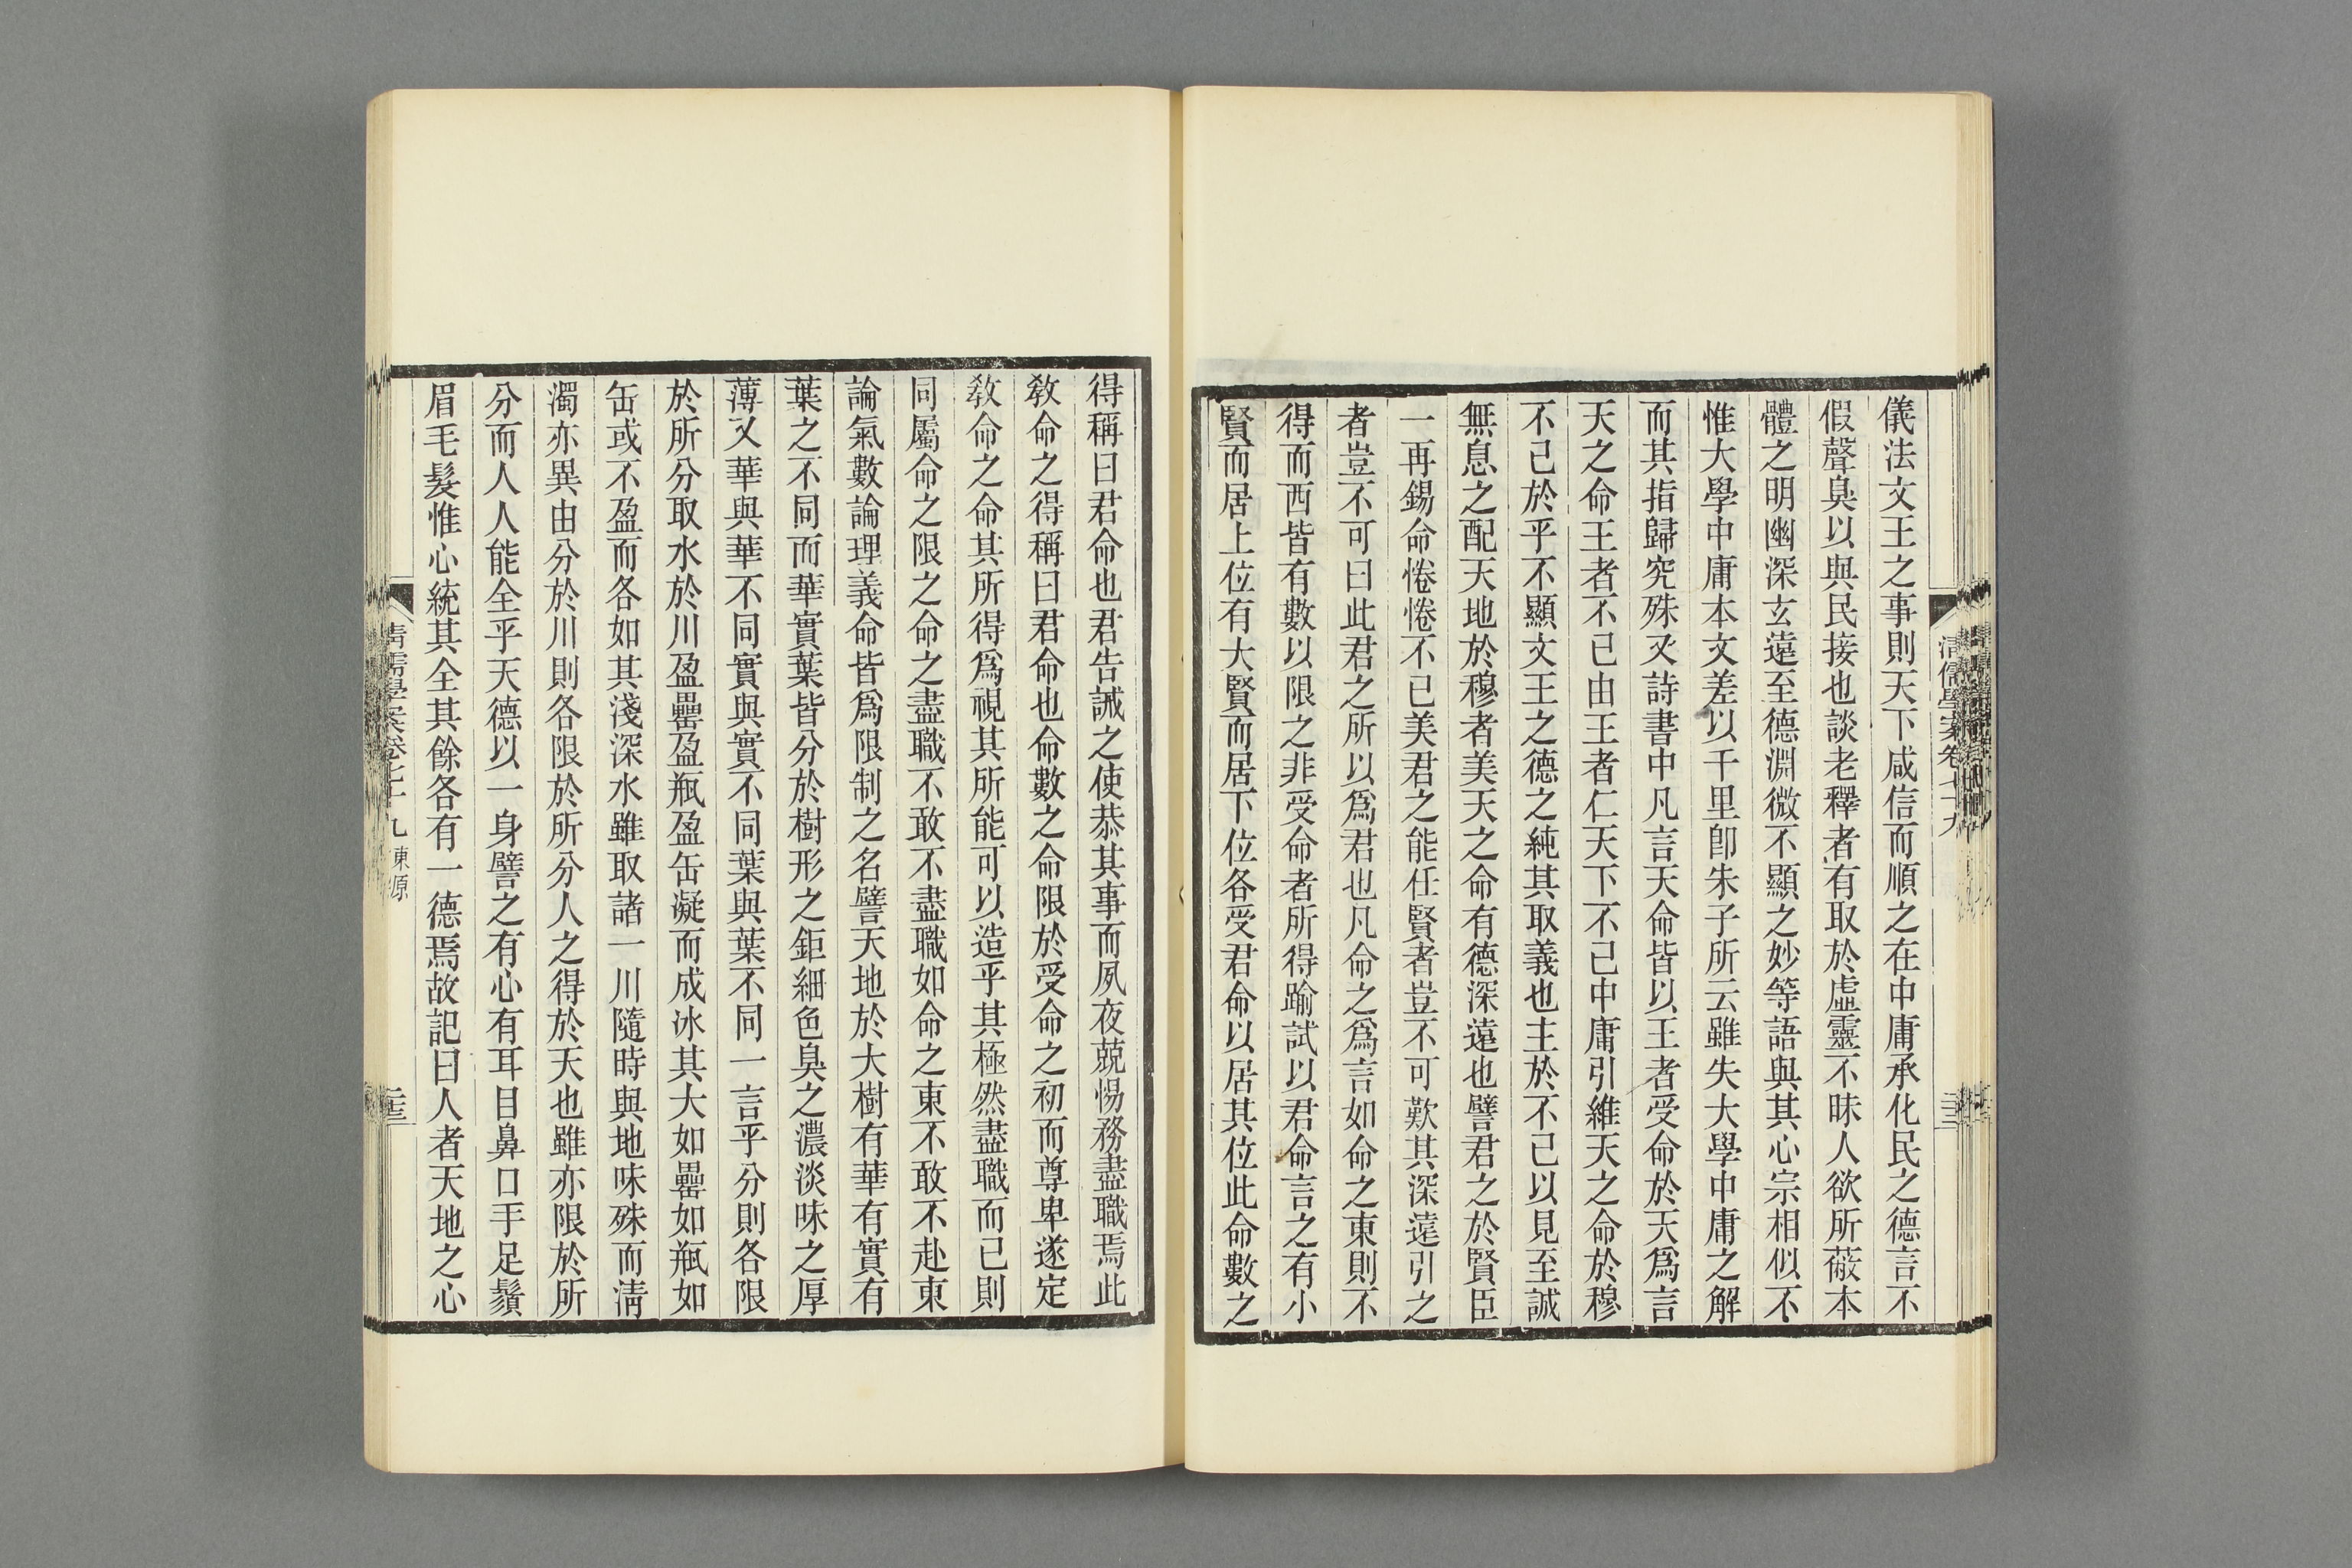 儀法文王之事則天下咸信而順之在中庸承化民之德言不
假聲臭以與民接也談老釋者有取於虛靈不昧人欲所蔽本
體之明幽深玄遠至德淵微不顯之妙等語與其心宗相似不
惟大學中庸本文差以千里卽朱子所云雖失大學中庸之解
而其指歸究殊又詩書中凡言天命皆以王者受命於天爲言
天之命王者不已由王者仁天下不已中庸引維天之命於穆
不已於乎不顯文王之德之純其取義也主於不已以見至誠
無息之配天地於穆者美天之命有德深遠也譬君之於賢臣
一再錫命惓惓不已美君之能任賢者豈不可歎其深遠引之
者豈不可曰此君之所以爲君也凡命之爲言如命之東則不
得而西皆有數以限之非受命者所得踰試以君命言之有小
賢而居上位有大賢而居下位各受君命以居其位此命數之
得稱曰君命也君告誡之使恭其事而夙夜兢惕務盡職焉此
敎命之得稱曰君命也命數之命限於受命之初而尊卑遂定
敎命之命其所得爲視其所能可以造乎其極然盡職而已則
同屬命之限之命之盡職不敢不盡職如命之東不敢不赴東
論氣數論理義命皆爲限制之名譬天地於大樹有華有實有
葉之不同而華實葉皆分於樹形之鉅細色臭之濃淡味之厚
薄又華與華不同實與實不同葉與葉不同一言乎分則各限
於所分取水於川盈罍盈瓶盈缶凝而成冰其大如罍如瓶如
缶或不盈而各如其淺深水雖取諸一川隨時與地味殊而淸
濁亦異由分於川則各限於所分人之得於天也雖亦限於所
分而人人能全乎天德以一身譬之有心有耳目鼻口手足鬚
眉毛髮惟心統其全其餘各有一德焉故記曰人者天地之心
淸儒學案卷七十九 東原